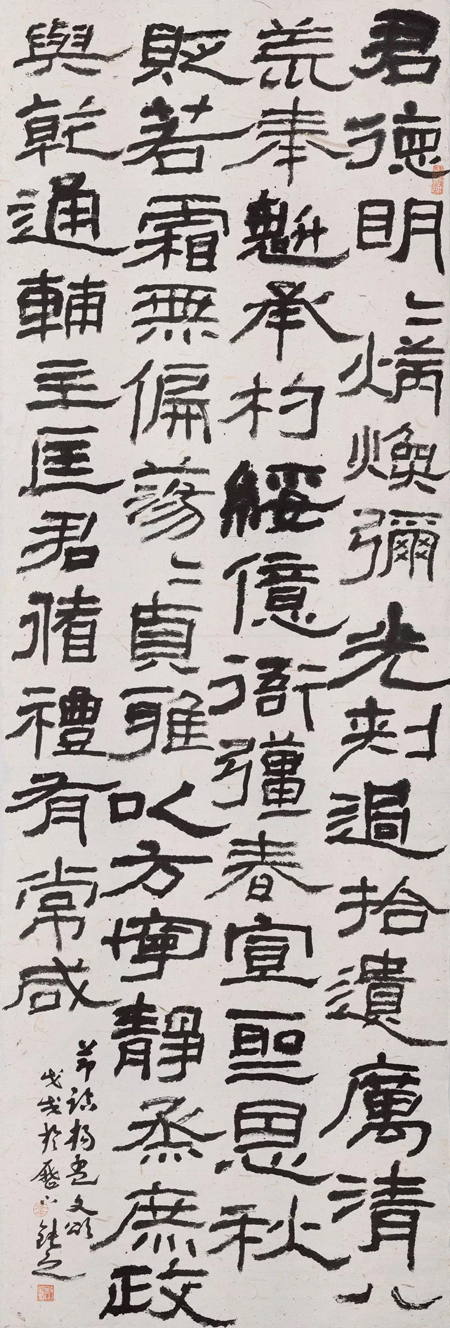 君德明〻炳煥彌光刺過拾遺厲清八
荒奉魁承杓綏億衙彊春宣聖恩秋
貶若霜無偏蕩〻貞雅以方寧靜烝庶政
與乾通輔主匡君循禮有常咸
節臨楊孟文頌
戊戌於歷下